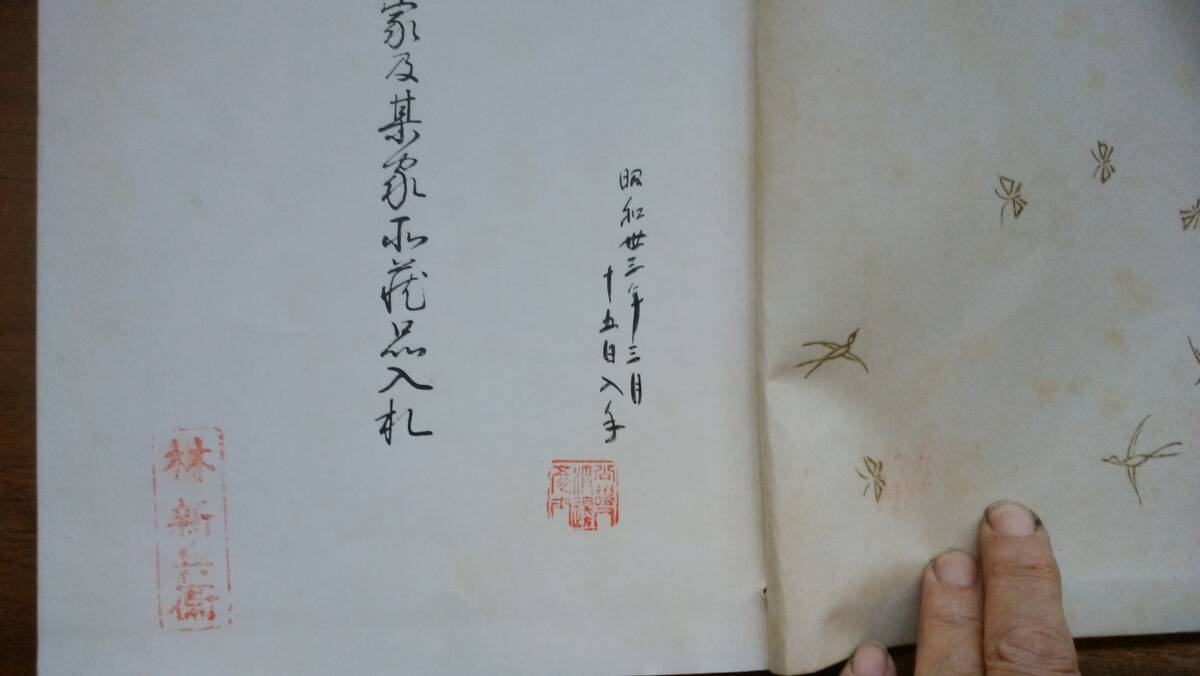 昭和卅三年三月
十五日入手
家及某家所蔵品入札
林新兵衛